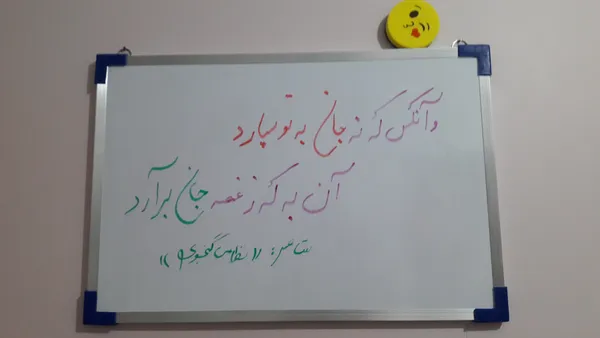 وآنکس که نه جان به تو سپارد
آن به که ز غصه جان برآرد
شاعر: «نظامی گنجوی»